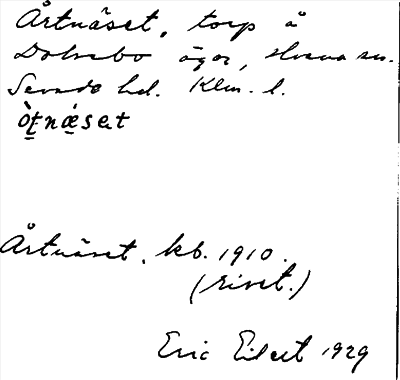 Årtnäset, torp å
Dolsebo ägor, sn.
Sevede hd. Klm. l.
ò̱ṯnǽ̱set
Årtnäset. kb. 1910.
(rivet.)
Eric Eilert 1929